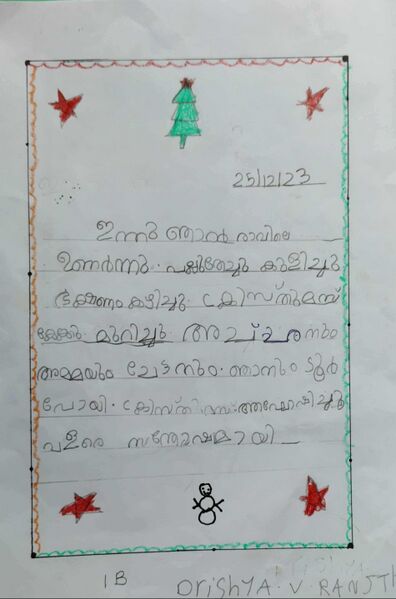 25/12/23
ഇന്നു ഞാൻ രാവിലെ
ഉണർന്നു. പല്ലുതേച്ചു കുളിച്ചു
ഭക്ഷണം കഴിച്ചു. ക്രിസ്തുമസ്
കേക്കു മുറിച്ചു. അച്ചനും
അമ്മയും ചേട്ടനും. ഞാനും ടൂർ
പോയി. ക്രിസ്തുമസ് ആഘോഷിച്ചു
വളരെ സന്തോഷമായി
1 B
DriSHYA.V.RANJTH